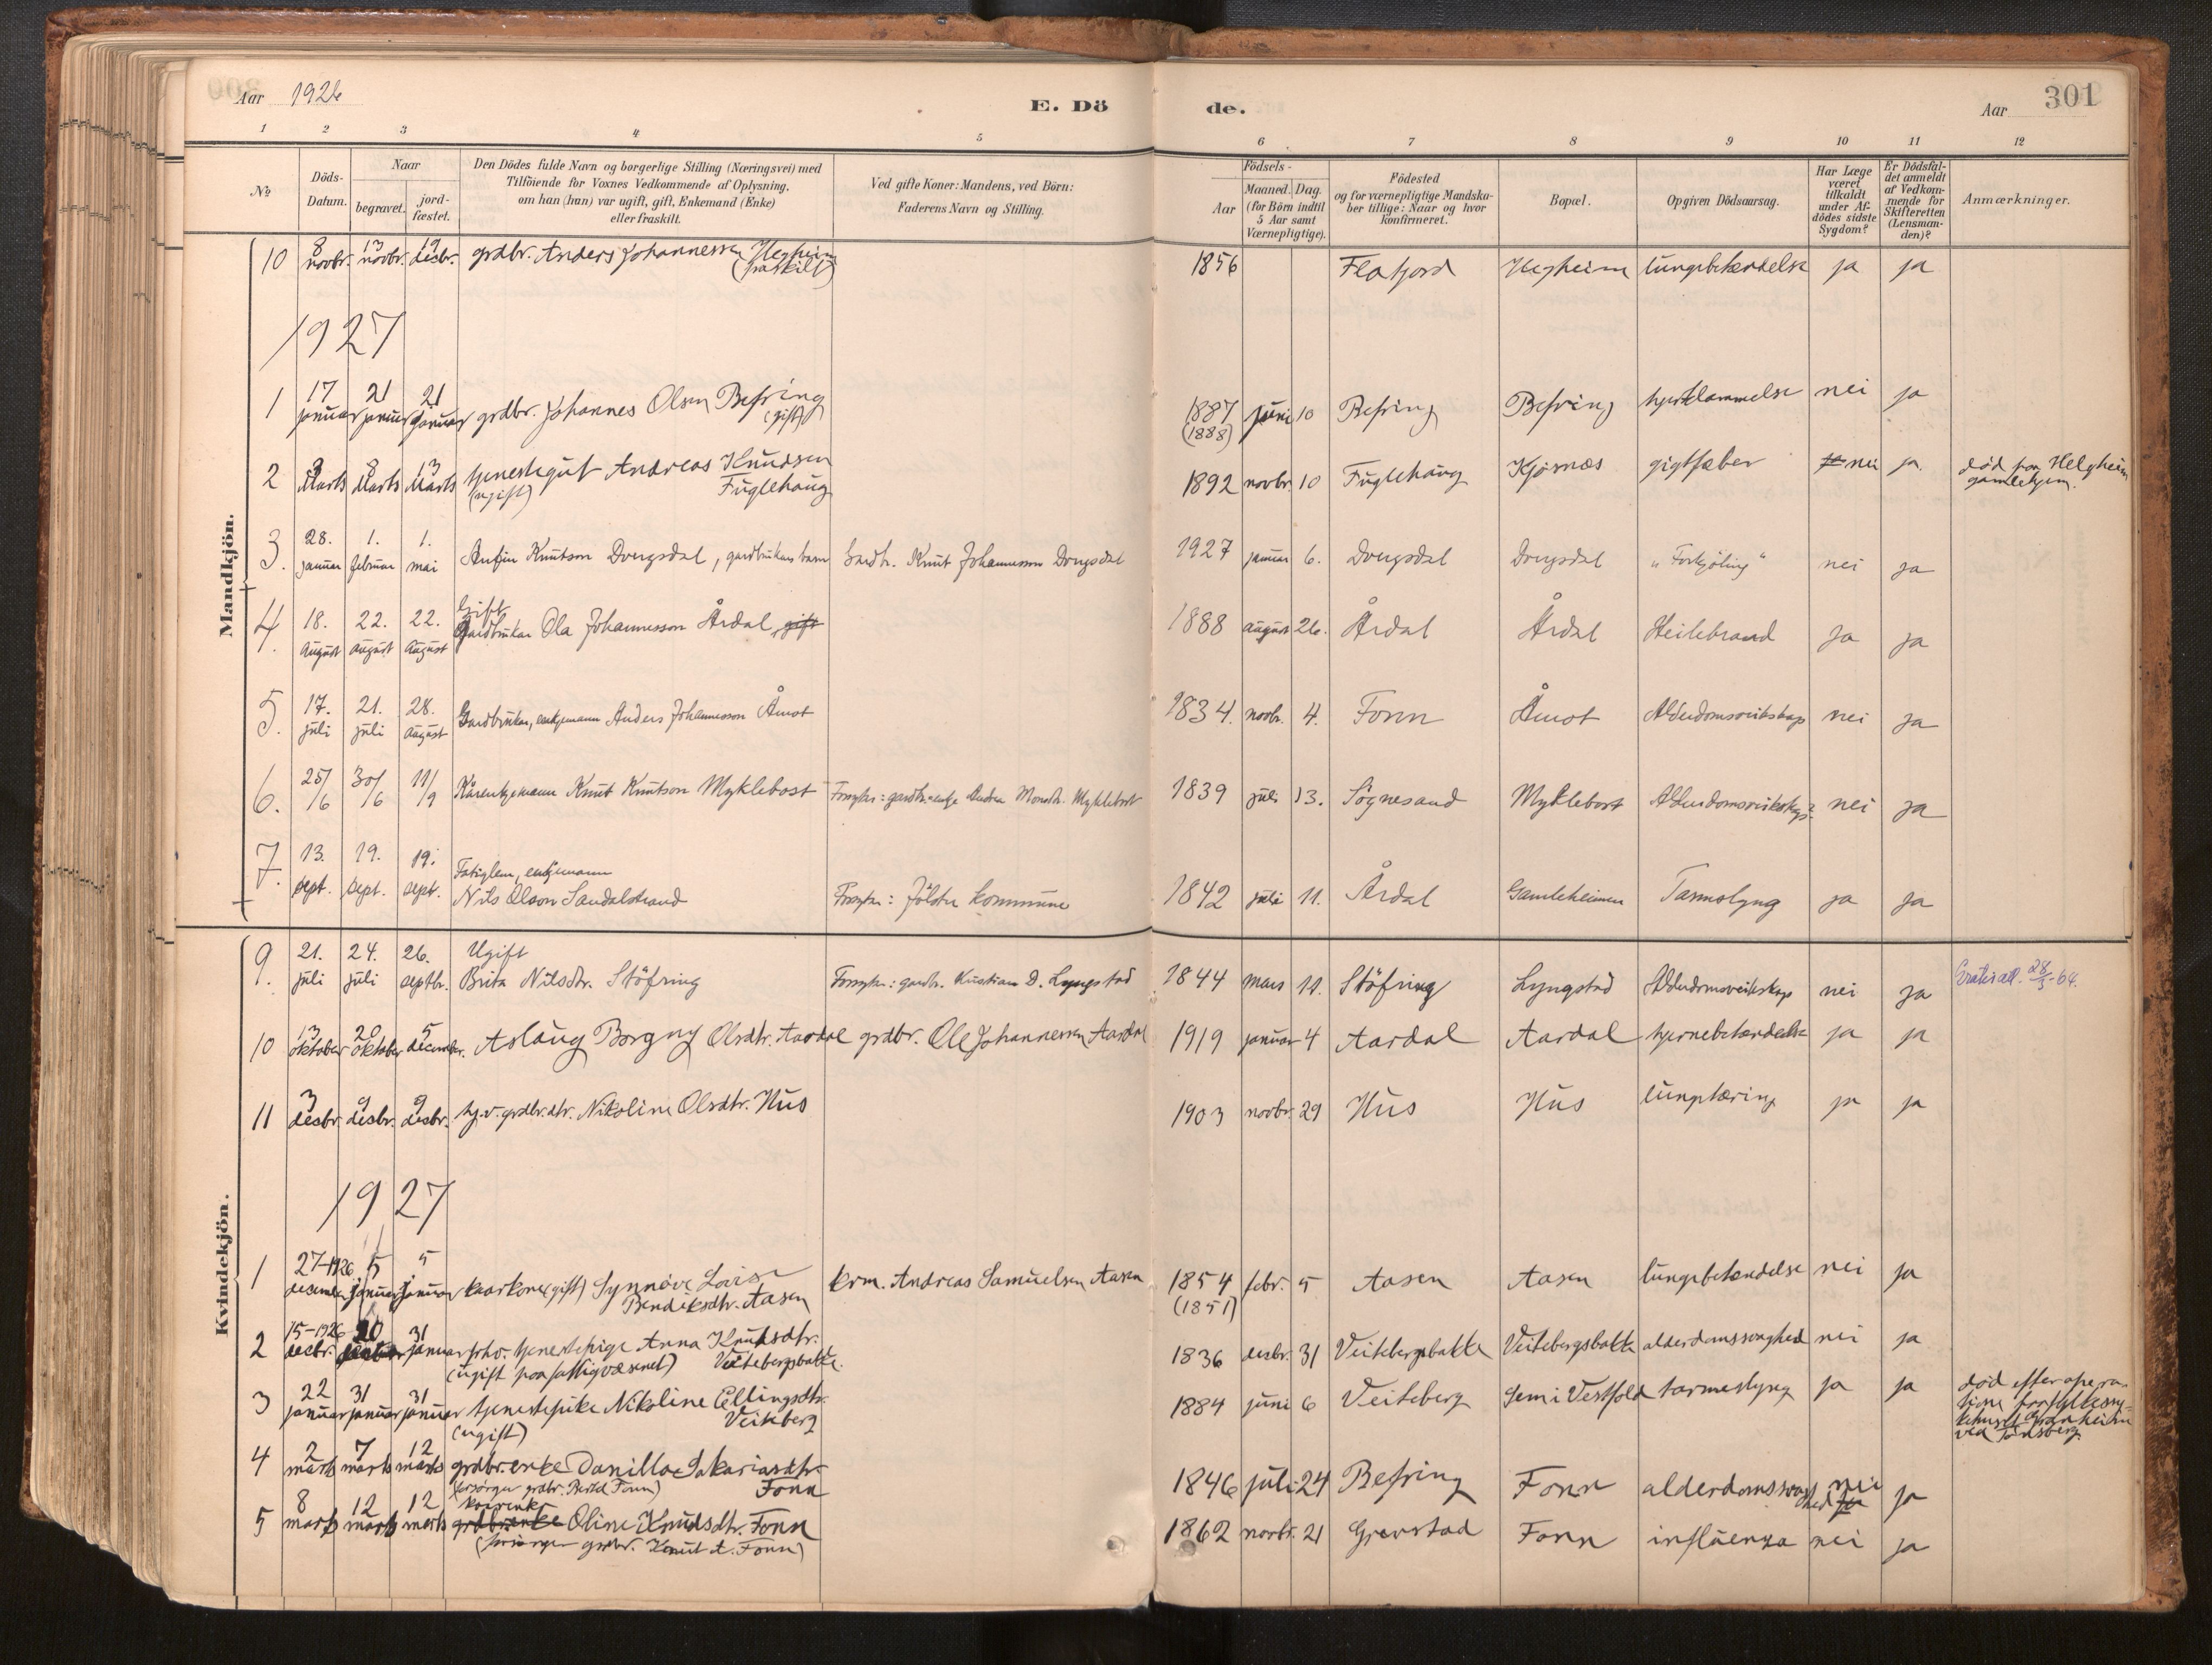 Aar 1926 E. Dö
de. Aar 301
1 2 3 4 5 6 7 8 9 10 11 12
№
Döds-Datum.
Naar
begravet.
jord-fæstet.
Den Dödes fulde Navn og borgerlige Stilling (Næringsvei) med
Tilföiende for Voxnes Vedkommende af Oplysning,
om han (hun) var ugift, gift, Enkemand (Enke)
eller fraskilt.
Ved gifte Koner: Mandens, ved Börn:
Faderens Navn og Stilling.
Födsels-
Aar
Maaned. Dag.
(for Börn indtil
5 Aar samt
Værnepligtige).
Födested
og for værnepligtige Mandska-
ber tillige: Naar og hvor
konfirmeret.
Bopæl.
Opgiven Dödsaarsag.
Har Læge
været
tilkaldt
under Af-
dödes sidste
Sygdom?
Er Dödsfal-
det anmeldt
af Vedkom-
mende for
Skifteretten
(Lensman-
den)?
Anmærkninger.
Mandkjön.
10 8 novbr. 13 novbr. 12 desbr. grdbr. Anders Johannessen Hegheim (fraskilt) 1856 Flafjord Hegheim lungebetændelse ja ja
1927
1 17 januar 21 januar 21 januar grdbr. Johannes Olsen Befring (gift) 1887 (1888) juni 10 Befring Befring hjertelammelse nei ja
2 3 Marts 8 Marts 13 Marts tjenestegut Andreas Knudsen Fuglehaug (ugift) 1892 novbr. 10 Fuglehaug Kjösnæs gigtfeber nei ja. död paa Helgheim gamlehjem.
3. 28. januar 1. februar 1. mai Anfin Knutson Dvergsdal, gardbrukars barn Gardbr. Knut Johannesson Dvergsdal 1927 januar 6. Dvergsdal Dvergsdal "Forkjöling" nei ja
4. 18. August 22. august 22. August Gift Gardbrukar Ola Johannesson Årdal, gift 1888 august 26. Årdal Årdal Heilebrand Ja ja
5. 17. juli 21. juli 28. august Gardbrukar, enkjemann Anders Johannesson Åmot 1834. novbr. 4. Fonn Åmot Alderdomsveikskap nei ja
6. 25/6 30/6 11/9 Kårenkjemann Knut Knutson Myklebost Forsytar: gardbr.enkje Andrea Monsdtr. Myklebost 1839 juli 13. Sögnesand Myklebost Alderdomsveikskap nei ja
7. 13. sept. 19. sept. 19. sept. Fatiglem, enkjemann
Nils Olson Sandalstrand Forsytar: Jölster kommune 1842 juli 11. Årdal Gamleheimen Tarmslyng ja ja
Kvindekjön.
9. 21. juli 24. juli 26. septbr. Ugift
Brita Nilsdtr. Stöfring Forsytar: gardbr. Kristian D. Lyngstad 1844 mars 11. Stöfring Lyngstad Alderdomsveikskap nei ja 28/3-64.
10 13 oktober 20 oktober 5 december. Aslaug Borgny Olsdtr. Aardal grdbr. Ole Johannessen Aardal 1919 januar 4 Aardal Aardal hjernebetændelse ja ja
11 3 desbr. 9 desbr. 9 desbr. hj.v. grdbr.dtr. Nikoline Olsdtr. Hus 1903 novbr. 29 Hus Hus lungetæring ja ja
1927
1 27-1926 desember 5 januar 5 januar kaarkone (gift) Synnöve Lovise Bendiksdtr. Aasen krm. Andreas Samuelsen Aasen 1854 (1851) febr. 5 Aasen Aasen lungebetændelse nei ja
2 15-1926 desbr. 20 31 januar fhv. tjenestepige Anna Knutsdtr. Veitebergsbakke. (ugift paa fattigvæsenet) 1836 desbr. 31 Veitebergsbakke Veitebergsbakke alderdomssvaghed nei ja
3 22 januar 31 januar 31 januar tjenestepike Nikoline Ellingsdtr. Veiteberg (ugift) 1884 juni 6 Veiteberg Sem i Vestfold tarmeslyng ja ja död efter opera-
tion paa fylkessy-
kehuset Granheim
ved Tönsberg.
4 2 marts 7 marts 12 marts grdbr.enke Danilla Sakariasdtr. Fonn (forsörger grdbr. Bertel Fonn) 1846 juli 24 Befring Fonn alderdomssvaghed nei ja ja
5 8 marts 12 marts 12 marts kaarenke grdbr.enke Oline Knudsdtr. Fonn (forsörger grdbr. Knut A. Fonn) 1862 novbr. 21 Grevstad Fonn influensa nei ja